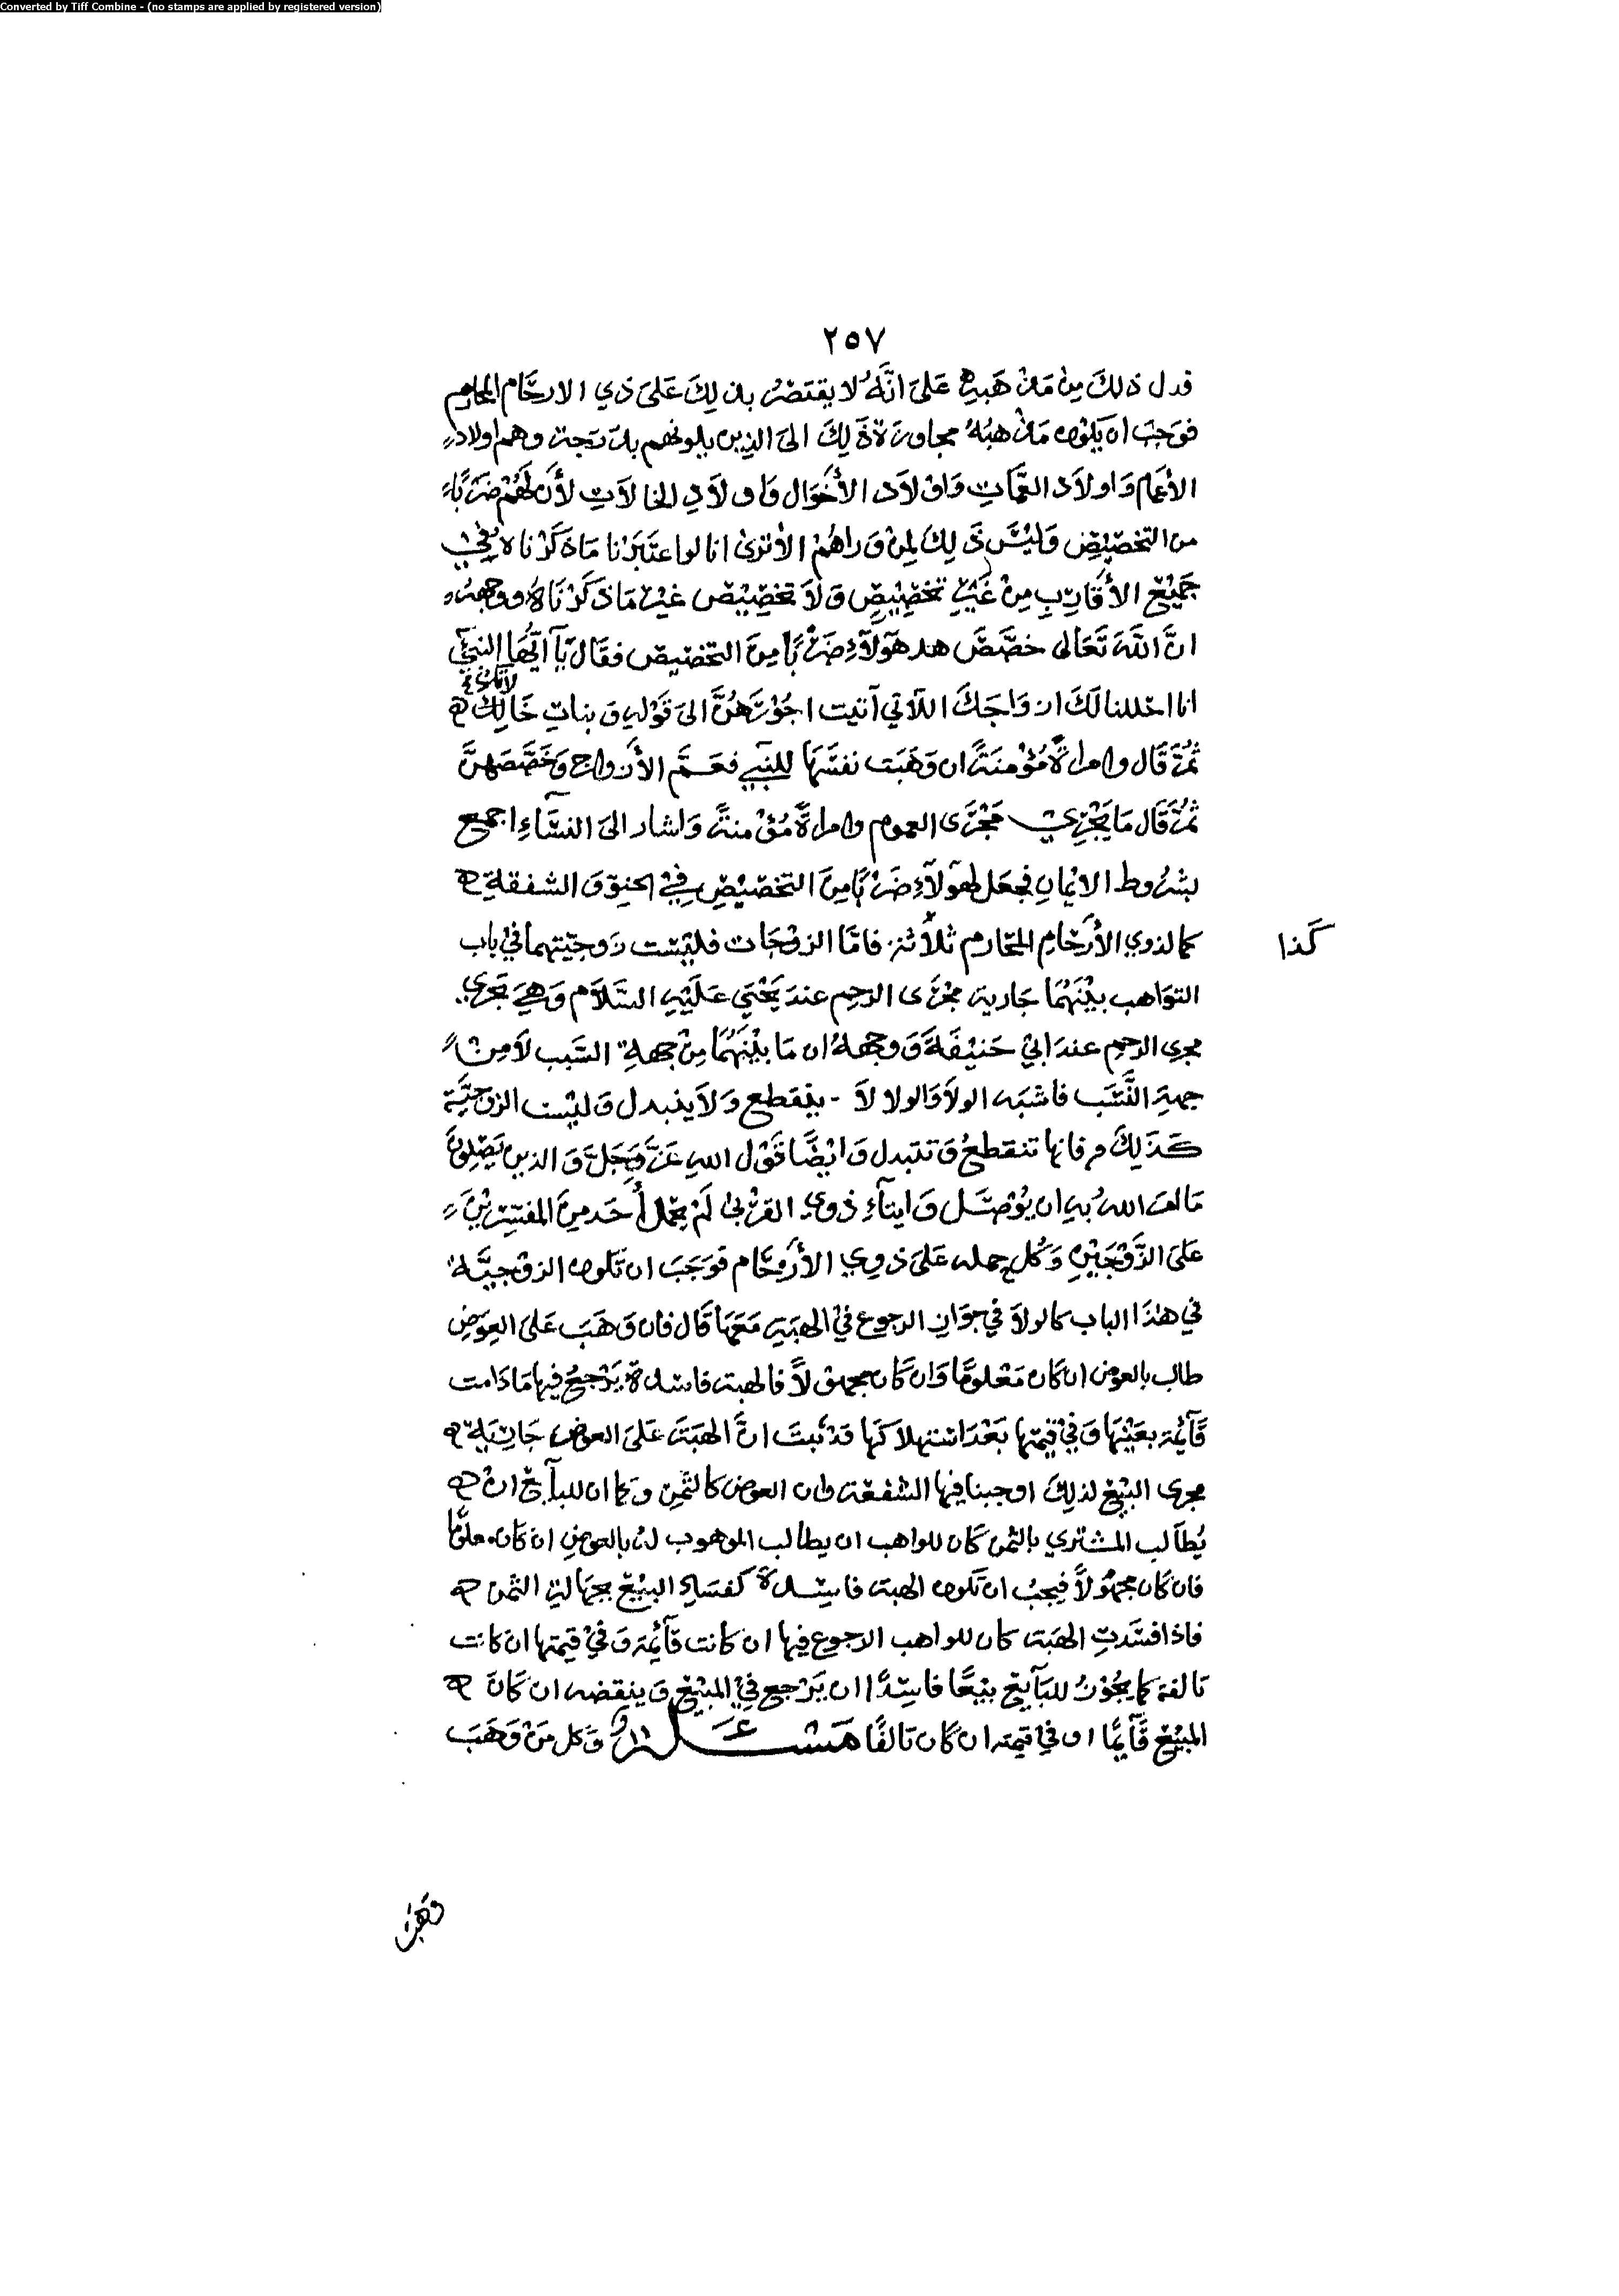 Converted by Tiff Combine - (no stamps are applied by registered version)
٢٥٧
فدل ذلك من مذهبه على انَّهُ لا يقتصرُ بذلِكَ عَلىَ ذي الارحَام المحارم
فوَجبَ ان يكون مذهبُهُ مجاوزة ذَلِكَ الى الذين يلونهم بدرَجة وهم اولاد
الأعمام وَاولاَد العمَّاتِ وَاوْلاَد الأَخوَال وَاولاَدِ الخالاَتِ لأَن لَهُمْ ضرْبًا
من التخصِيْصِ وَليْسَ ذَلِكَ لِمنْ وَراهُمْ الأَترىَ انا لو اعتَبَرْنا مَا ذكَرْناه في
جَميْع الأَقَارِبِ مِنْ غَيْرِ تخصِيْصٍ وَلاَ تخصِيْص غيْر مَا ذكَرْنَاهُ ووجهُهُ
انَّ اللَّهَ تَعَالى خصَّصَ هَوَلآءِ ضرْبًا مِنَ التخصيص فقَال يَآ ايّهَا النبيّ
انا احللنا لَكَ ازوَاجَكَ اللآتي آتيت اجُوْرَهُنَّ الىَ قوْلهِ وَبناتِ خَالِكَ
ثُمَّ قَال وامراةً مُؤْمنَةً ان وَهَبَت نفسَهَا للنَّبيِّ فعَمَّ الأَزواج وَخَصَّصَهنَّ
ثُمَّ قَال مَا يَجْرِيْ مَجْرَى العموم وامراةً مُؤْمنةً وَاشار الىَ النسَّاءِ اجمع
بشرُوط الايمانِ فجعَل لهَوَلآءِ ضَرْبًا مِنَ التخصِيْصِ فيْ الحنوّ وَ الشفقة
كما لذوي الأَرحَامِ المحَارم ثلاَثة. فامَّا الزوْجَات فليْسَت زَوجيّتهما في باب
كَذا
التوَاهب بيْنَهُمَا جَارية مجْرَى الرحِم عندَ يَحْيَى عَلَيْهِ السَّلاَم وَهِيَ تجري
مجرى الرحِم عندَ ابيْ حَنيْفَةَ وَوجههُ ان مَا بيْنَهُمَا مِنْ جهةِ السَّبب لاَ مِنْ
جهةِ النَّسَب فاشبَه الولاَ وَالولا لاَ - ينقطع وَلاَ يتبدل وَليْست الزوجيَّة
كَذَلِكَ فانها تنقطعُ وَتتبدل وَايْضًا قوْل اللهِ عَزَّ وَجَلَّ وَالذين يَصِلونَ
مَا امَر اللهُ بهِ ان يُوْصَل وَايتآءِ ذوي القرْبىَ لَمْ يحمله أَحَد مِنَ المفسِّرِيْنَ
عَلىَ الزَّوْجَيْنِ وَكُلٌ حمله عَلىَ ذوِي الأَرْحَام فوَجَبَ ان تكون الزوْجيَّة
في هٰذَا الباب كالولاَ في جوَاز الرجوع فيْ الهبَةِ مَعَهَا قَال فان وَهَبَ عَلىَ العِوَضِ
طالب بالعوض ان كَان مَعْلومًا وَان كَان مجهوْلاً فالهبة فاسدة يَرْجعُ فيها مَا دَامت
قَآئمة بعَيْنِهَا وَفيْ قيْمتها بَعْدَ استهلاَكهَا قدْ ثبتَ انَّ الهبَةَ عَلىَ العوض جَارِيَة
مجرى البيْع لذلِكَ اوجبنا فيها الشفعَة وان العوض كالثمن وكما ان للبآئع انْ
يُطَالب المشتري بالثمن كَان للواهب ان يطالب الموهوب لهُ بالعوضِ ان كَان معلومًا
فان كَان مجهوْلاً فيجبُ ان تكون الهبة فاسِدةً كفسَادِ البيْع بجهَالةِ الثمن
فاذا فسَدتِ الهبَة كان للواهب الرجوع فيها ان كانت قآئمة وَفيْ قيمتها ان كانت
تالفة كما يجُوْزُ للبَآيعْ بيْعًا فاسِدًا ان يَرْجع فيْ المبيْع وَينقضه ان كَانَ
المبيْع قَآيمًا او فيْ قيمته ان كَان تالفًا مَسْئَلَة وَكل مَنْ وَهَبَ
وَهَبَ